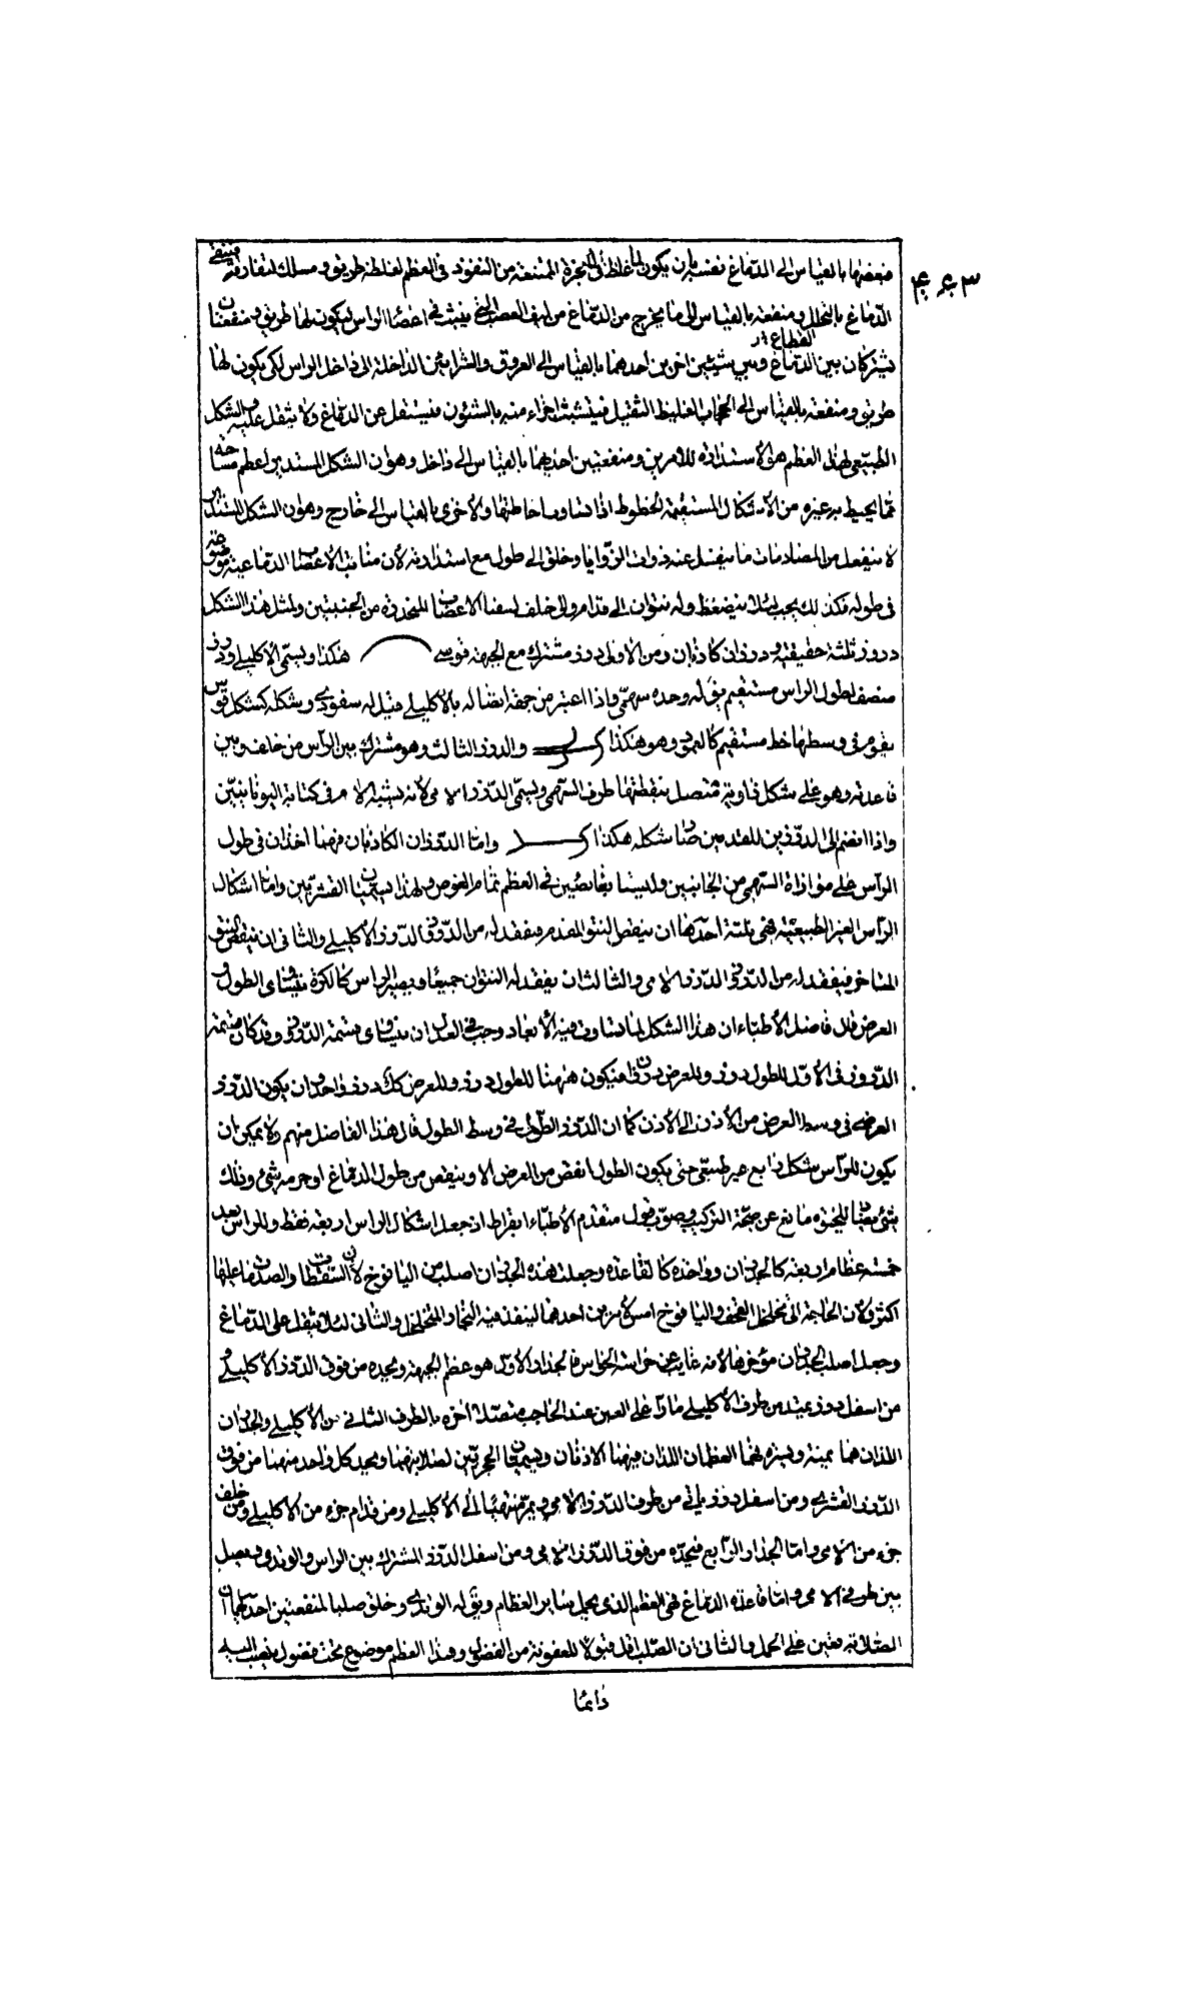 منفعتها بالقياس الى الدماغ نفسه بان يكون لما غلظ فى الابخرة الممتنعة من النفوذ فى العظم لغلظه طريق ومسلك لتفارقه فينقى
الدماغ بالتحلل ومنفعة بالقياس الى ما يخرج من الدماغ من ليف العصب الذى ينبث فى اعضاء الراس ليكون لها طريق ومنفعتان
القطاع
تشتركان بين الدماغ وبين شيئين اخرين احدهما بالقياس الى العروق والشرائين الداخلة الى داخل الراس لكى يكون لها
طريق ومنفعة بالقياس الى الحجاب الغليظ الثقيل فيتشبث اجزاء منه بالشئون فيستقل عن الدماغ ولا يثقل عليه والشكل
الطبيعى لهذا العظم هو الاستدارة للامرين ومنفعتين احديهما بالقياس الى داخل وهو ان الشكل المستدير اعظم مساحة
مما يحيط به غيره من الاشكال المستقيمة الخطوط اذا تساوت احاطتها والاخرى بالقياس الى خارج وهو ان الشكل المستدير
لا ينفعل من المصادمات ما ينفعل عنه ذوات الزوايا وخلق الى طول مع استدارته لان منابت الاعصاب الدماغية موضوعة
فى طوله فكذلك يجب لئلا ينضغط وله نتوان الى قدام والى خلف ليقيا الاعصاب المنحدرة من الجنبتين ولمثل هذا الشكل
دروز ثلثة حقيقية ودرزان كاذبان ومن الاولى درز مشترك مع الجبهة قوسى هكذا ويسمى الاكليلى ودرز
منصف لطول الراس مستقيم يق له وحده سهمى واذا اعتبر من جهة اتصاله بالاكليلى قيل له سفودى وشكله كشكل قوس
يقوم فى وسطها خط مستقيم كالعمود وهو هكذا والدرز الثالث وهو مشترك بين الراس من خلف وبين
قاعدته وهو على شكل زاوية متصل بنقطتها طرف السهمى ويسمى الدرز اللامى لانه يشبه اللام فى كتابة اليونانيين
واذا انضم الى الدرزين المقدمين صار شكله هكذا واما الدرزان الكاذبان فهما اخذان فى طول
الراس على موازاة السهمى من الجانبين وليسا بغائصين فى العظم تمام الغوص ولهذا يسميان القشريين واما اشكال
الراس الغير الطبيعية فهى ثلثة احدها ان ينقص النتو المقدم فيفقد له من الدروز الدرز الاكليلى والثانى ان ينقص النتو
المتاخر فيفقد له من الدروز الدرز اللامى والثالث ان يفقد له النتوان جميعا ويصير الراس كالكرة متساوى الطول و
العرض قال فاضل الاطباء ان هذا الشكل لما تساوت فيه الابعاد وجب فى العدل ان يتساوى قسمة الدروز وقد كان قسمة
الدروز فى الاول للطول درز وللعرض درزان فيكون ههنا للطول درز وللعرض كك درز واحد وان يكون الدرز
العرضى فى وسط العرض من الاذن الى الاذن كما ان الدرز الطولى فى وسط الطول قال هذا الفاضل منهم ولا يمكن ان
يكون للراس شكل رابع غير طبيعى حتى يكون الطول انقص من العرض الا وينقص من طول الدماغ او جرمه شئ وذلك
شئ مضاد للحيوة مانع عن صحة التركيب وصوب قول متقدم الاطباء ابقراط اذ جعل اشكال الراس اربعة فقط وللراس بعد
خمسة عظام اربعة كالجدران وواحدة كالقاعدة وجعلت هذه الجدران اصلب من اليافوخ لان السقطات والصدمات عليها
اكثر ولان الحاجة الى تخلخل القحف واليافوخ امس لامرين احدهما لينفذ فيه البخار المتحلل والثانى لئلا يثقل على الدماغ
وجعل اصلب الجدران مؤخرها لانه غايب عن حراسة الحواس فالجدار الاول هو عظم الجبهة ويحده من فوق الدرز الاكليلى و
من اسفل درز يمتد من طرف الاكليلى مارا على العين عند الحاجب متصلا اخره بالطرف الثانى من الاكليلى والجداران
اللذان هما يمنة ويسرة فهما العظمان اللذان فيهما الاذنان ويسميان الحجريين لصلابتهما ويحد كل واحد منهما من فوق
الدرز القشرى ومن اسفل درز ياتى من طرف الدرز اللامى ويمر منتهيا الى الاكليلى ومن قدام جزء من الاكليلى ومن خلف
جزء من اللامى واما الجدار الرابع فيحده من فوق الدرز اللامى ومن اسفل الدرز المشترك بين الراس والوتدى ويصل
بين طرفى اللامى واما قاعدة الدماغ فهى العظم الذى يحمل ساير العظام ويق له الوتدى وخلق صلبا لمنفعتين احديهما ان
الصلابة تعين على الحمل والثانى ان الصلب اقل قبولا للعفونة من الفضول وهذا العظم موضوع تحت فضول ينصب اليه
دائما